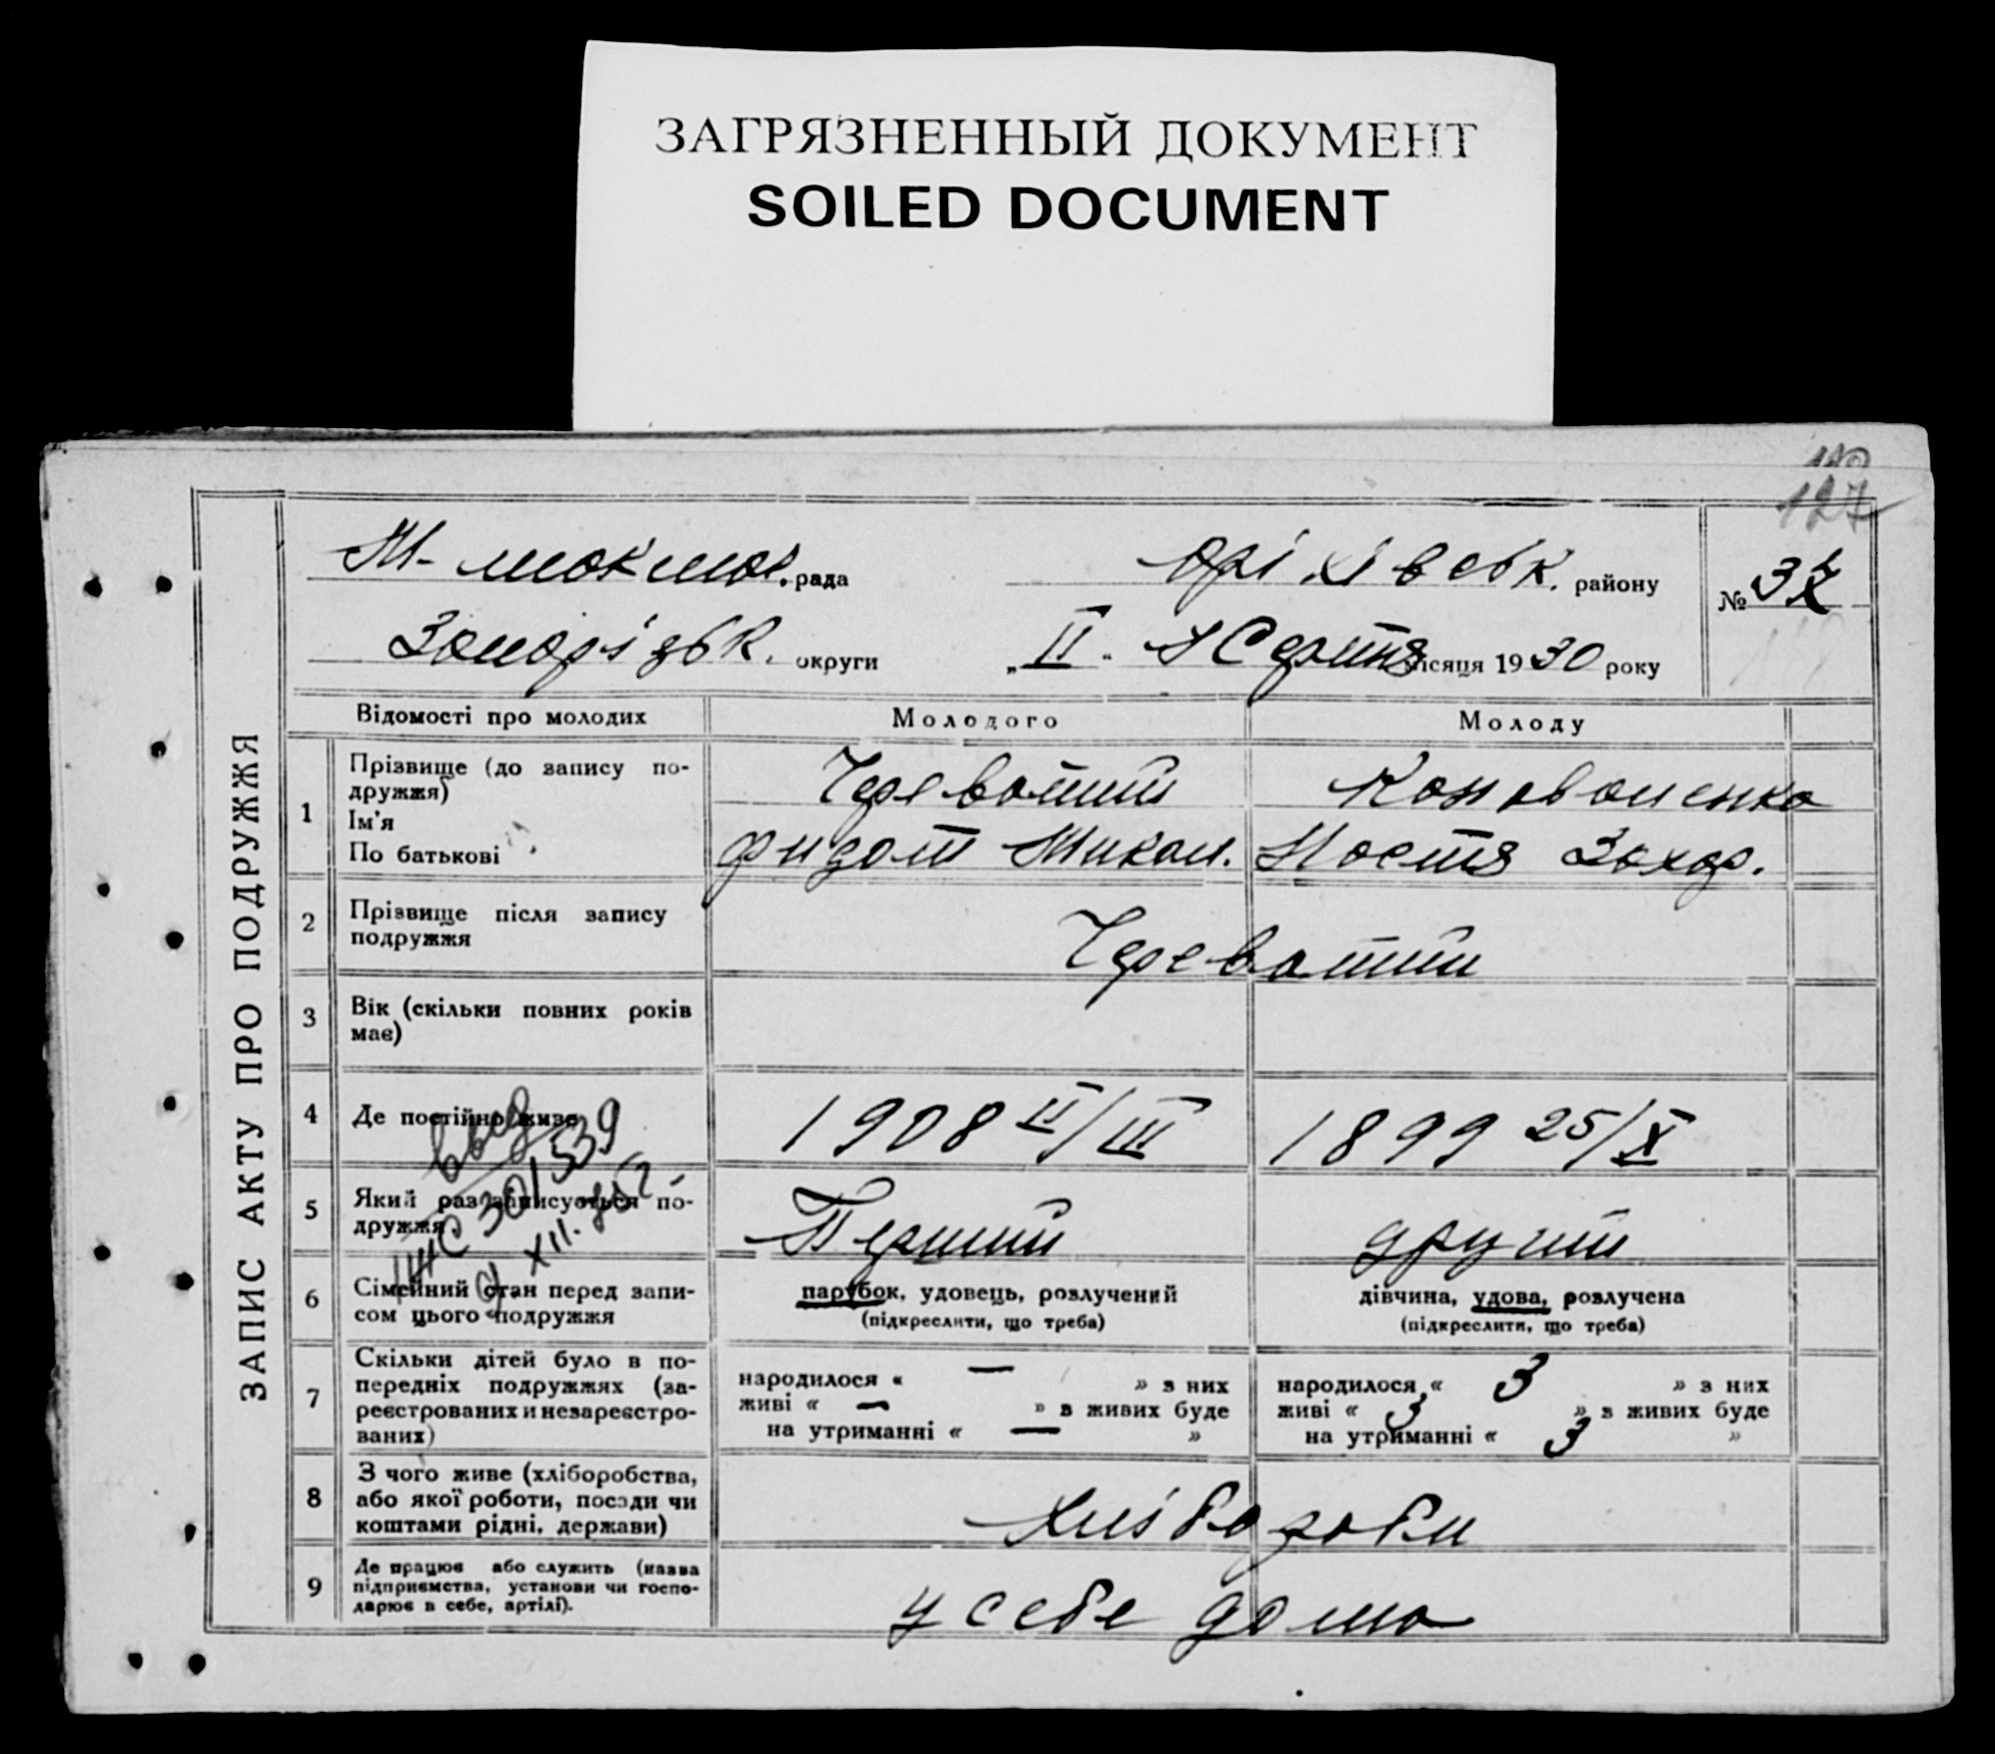 ЗАГРЯЗНЕННЫЙ ДОКУМЕНТ
SOILED DOCUMENT
127
М-токмац. рада Оріхівськ. району № 32
Запорізьк. округи „II" Серпня місяця 1930 року
ЗАПИС АКТУ ПРО ПОДРУЖЖЯ
Відомості про молодих Молодого Молоду
1 Прізвище (до запису по-
дружжя)
Череватий Коноваленко
Ім'я
По батькові
Фидот Микол. Настя Захар.
2 Прізвище після запису
подружжя
Череватий
3 Вік (скільки повних років
має)
4 Де постійно живе 1908 II/III 1899 25/X
301539
5 Який раз записується по-
дружжя
Перший другий
6 Сімейний стан перед запи-
сом цього подружжя
парубок, удовець, розлучений
(підкреслити, що треба)
дівчина, удова, розлучена
(підкреслити, що треба)
7 Скільки дітей було в по-
передніх подружжях (за-
реєстрованих и незареєстро-
ваних)
народилося « — » з них
живі « — » в живих буде
на утриманні « — »
народилося « 3 » з них
живі « 3 » в живих буде
на утриманні « 3 »
8 З чого живе (хліборобства,
або якої роботи, посади чи
коштами рідні, держави)
Хлібороби
9 Де працює або служить (назва
підприємства, установи чи госпо-
дарює в себе, артілі).
у себе дома